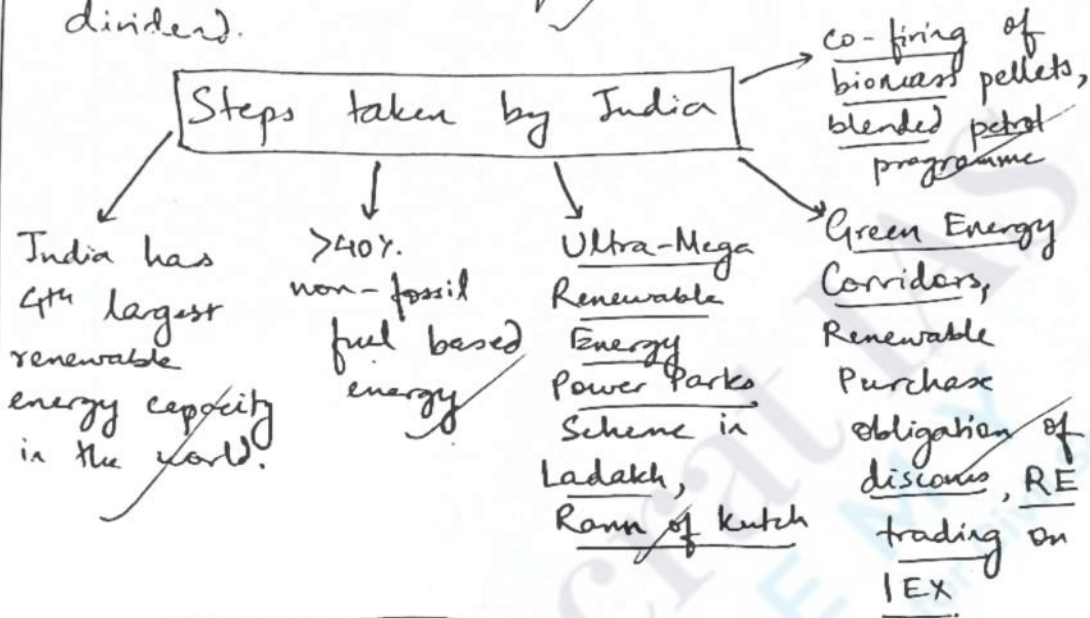 dividend.
Steps taken by India
co-firing of
biomass pellets,
blended petrol
programme
India has
4th largest
renewable
energy capacity
in the world.
>40%.
non-fossil
fuel based
energy
Ultra-Mega
Renewable
Energy
Power Parks
Scheme in
Ladakh,
Rann of Kutch
Green Energy
Corridors,
Renewable
Purchase
obligation of
discoms, RE
trading on
IEX